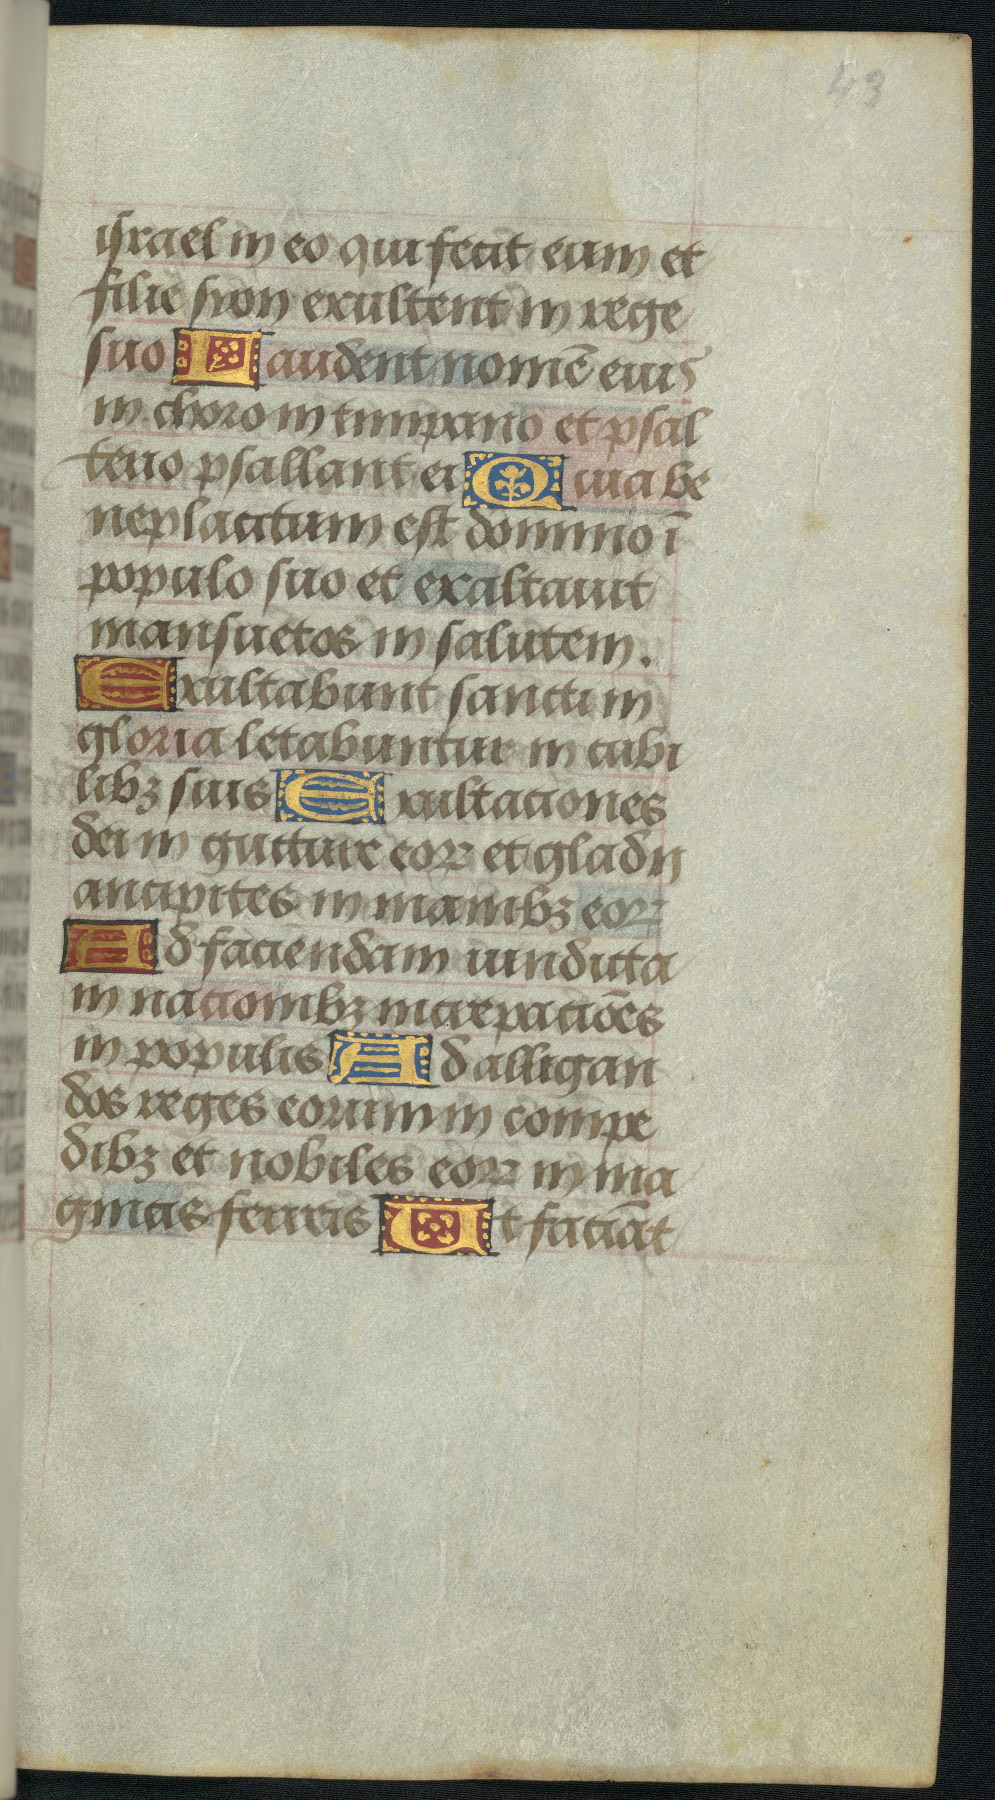 43
israel in eo qui fecit eum et
filie sion exultent in rege
suo Laudent nomē eius
in choro in timpano et psal
terio psallant ei Quia be
neplacitum est domino ī
populo suo et exaltauit
mansuetos in salutem.
Exultabunt sancti in
gloria letabuntur in cubi
libꝫ suis Exultaciones
dei in gutture eoꝝ et gladii
ancipites in manibꝫ eoꝝ
Ad faciendam uindicta
in nacionibꝫ increpaciōes
in populis Ad alligan
dos reges eorum in compe
dibꝫ et nobiles eoꝝ in ma
nicis ferreis Ut faciāt